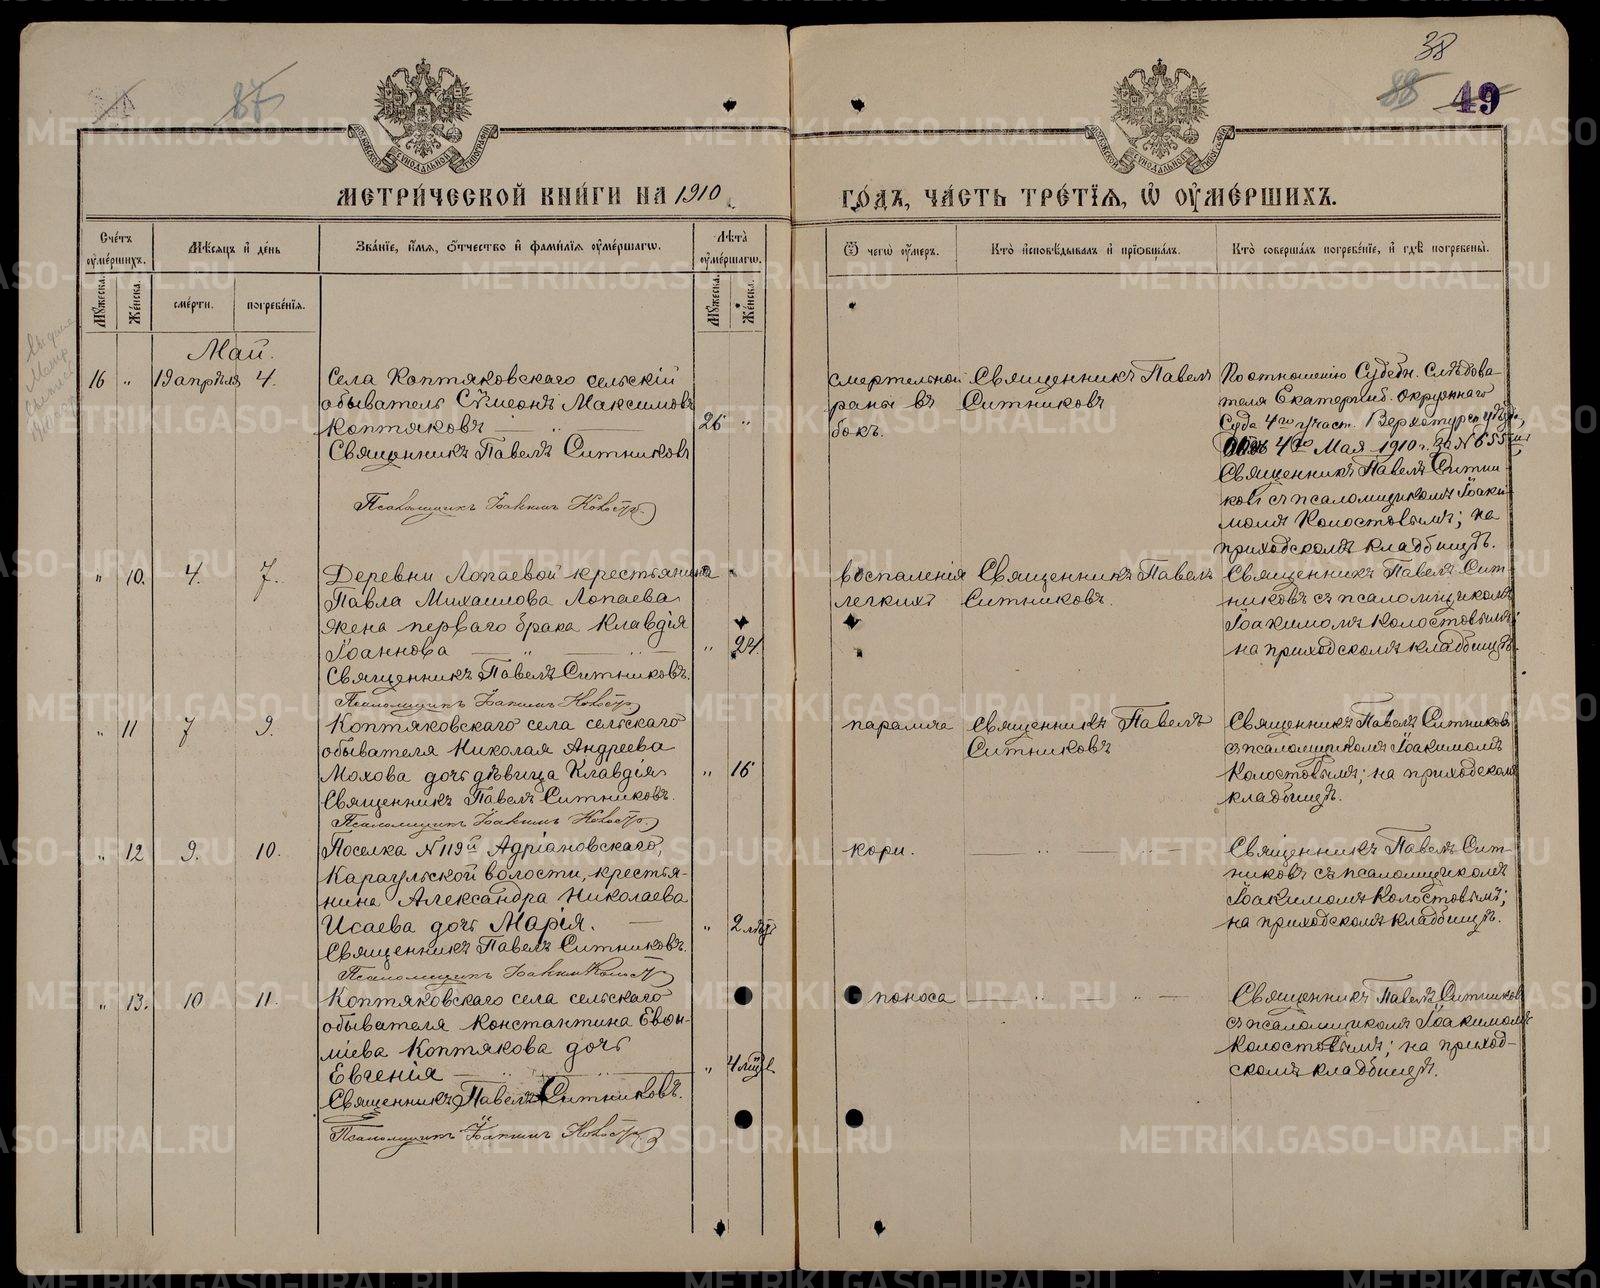 87
38
88
49
МЕТРИ́ЧЕСКОЙ КНИ́ГИ НА 1910
ГО́ДЪ, ЧА́СТЬ ТРЕ́ТЇЯ, Ѽ ОУМЕ́РШИХЪ.
Сче́тъ оуме́ршихъ.
Мѣ́сяцъ и де́нь
Зва́нїе, и́мя, о́тчество и фами́лїя оуме́ршагѡ.
Лѣ́та оуме́ршагѡ.
Ѿ чегѡ̀ оу́меръ.
Кто̀ и҆сповѣ́дывалъ и҆ прїѡбща́лъ.
Кто̀ соверша́лъ погребе́нїе, и҆ гдѣ̀ погребены̀.
Мꙋ́жеска.
Же́нска.
сме́рти.
погребе́нїя.
Мꙋ́жеска.
Же́нска.
Май.
16 " 19 апрѣля 4.
Села Коптяковскаго сельскій
обыватель Сѵмеонъ Максимовъ
Коптяковъ 26 "
Священникъ Павелъ Ситниковъ
Псаломщикъ Іоакимъ
смертельной
раны въ
бокъ.
Священникъ Павелъ
Ситниковъ
По отношенію Судебн. Слѣдова
теля Екатеринб. Окружнаго
Суда 4го участ. Верхотурск. уѣзда,
4го Мая 1910 г. за № 655
Священникъ Павелъ Ситни
ковъ съ псаломщикомъ Іоаки
момъ Колостовымъ; на
приходскомъ кладбищѣ.
" 10. 4. 7.
Деревни Лопаевой крестьянина
Павла Михаилова Лопаева
жена перваго брака Клавдія
Іоаннова " 24.
Священникъ Павелъ Ситниковъ.
Псаломщикъ Іоакимъ
воспаленія
легкихъ
Священникъ Павелъ
Ситниковъ.
Священникъ Павелъ Сит-
никовъ съ псаломщикомъ
Іоакимомъ Колостовымъ;
на приходскомъ кладбищѣ.
" 11 7 9.
Коптяковскаго села сельскаго
обывателя Николая Андреева
Мохова дочь дѣвица Клавдія " 16
Священникъ Павелъ Ситниковъ.
Псаломщикъ Іоакимъ
паралича
Священникъ Павелъ
Ситниковъ
Священникъ Павелъ Ситниковъ
съ псаломщикомъ Іоакимомъ
Колостовымъ; на приходскомъ
кладбищѣ.
" 12 9. 10.
Поселка № 119й Адріановскаго,
Караульской волости, крестья-
нина Александра Николаева
Исаева дочь Марія. " 2 лѣтъ
Священникъ Павелъ Ситниковъ.
Псаломщикъ Іоакимъ
кори.
Священникъ Павелъ Сит-
никовъ съ псаломщикомъ
Іоакимомъ Колостовымъ;
на приходскомъ кладбищѣ.
" 13. 10 11.
Коптяковскаго села сельскаго
обывателя Константина Евѳи-
міева Коптякова дочь
Евгенія " 4 мѣс
Священникъ Павелъ Ситниковъ.
Псаломщикъ Іоакимъ
поноса
Священникъ Павелъ Ситниковъ
съ псаломщикомъ Іоакимомъ
Колостовымъ; на приход-
скомъ кладбищѣ.
METRIKI.GASO-URAL.RU